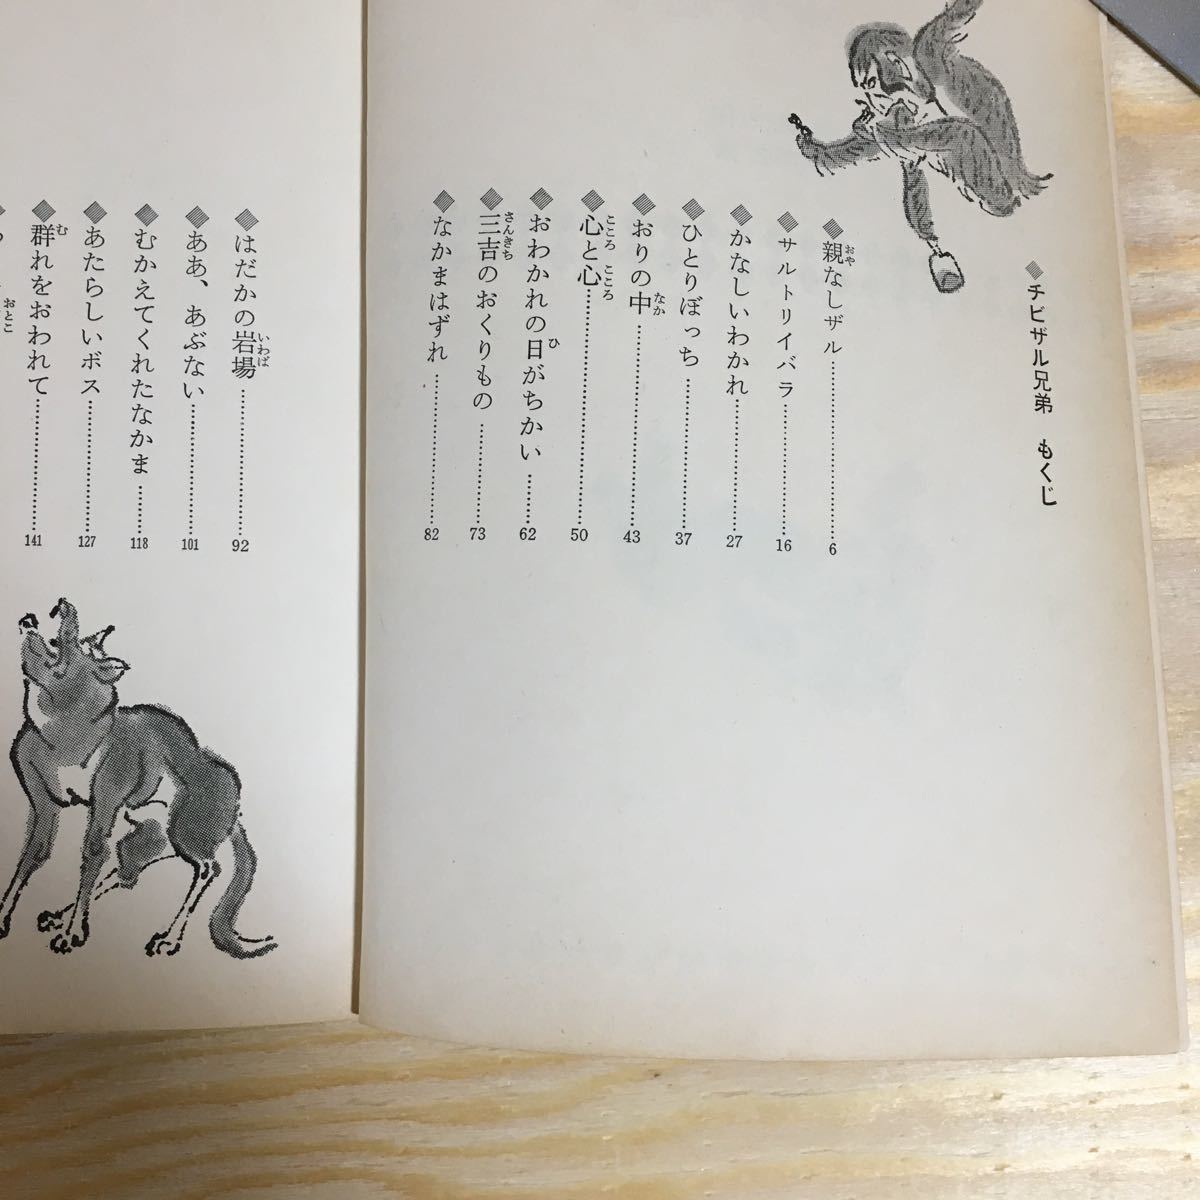 ◆チビザル兄弟 もくじ
◆親なしザル……………6
◆サルトリイバラ……………16
◆かなしいわかれ……………27
◆ひとりぼっち……………37
◆おりの中……………43
◆心と心……………50
◆おわかれの日がちかい……………62
◆三吉のおくりもの……………73
◆なかまはずれ……………82
◆はだかの岩場……………92
◆ああ、あぶない……………101
◆むかえてくれたなかま……………118
◆あたらしいボス……………127
◆群れをおわれて……………141